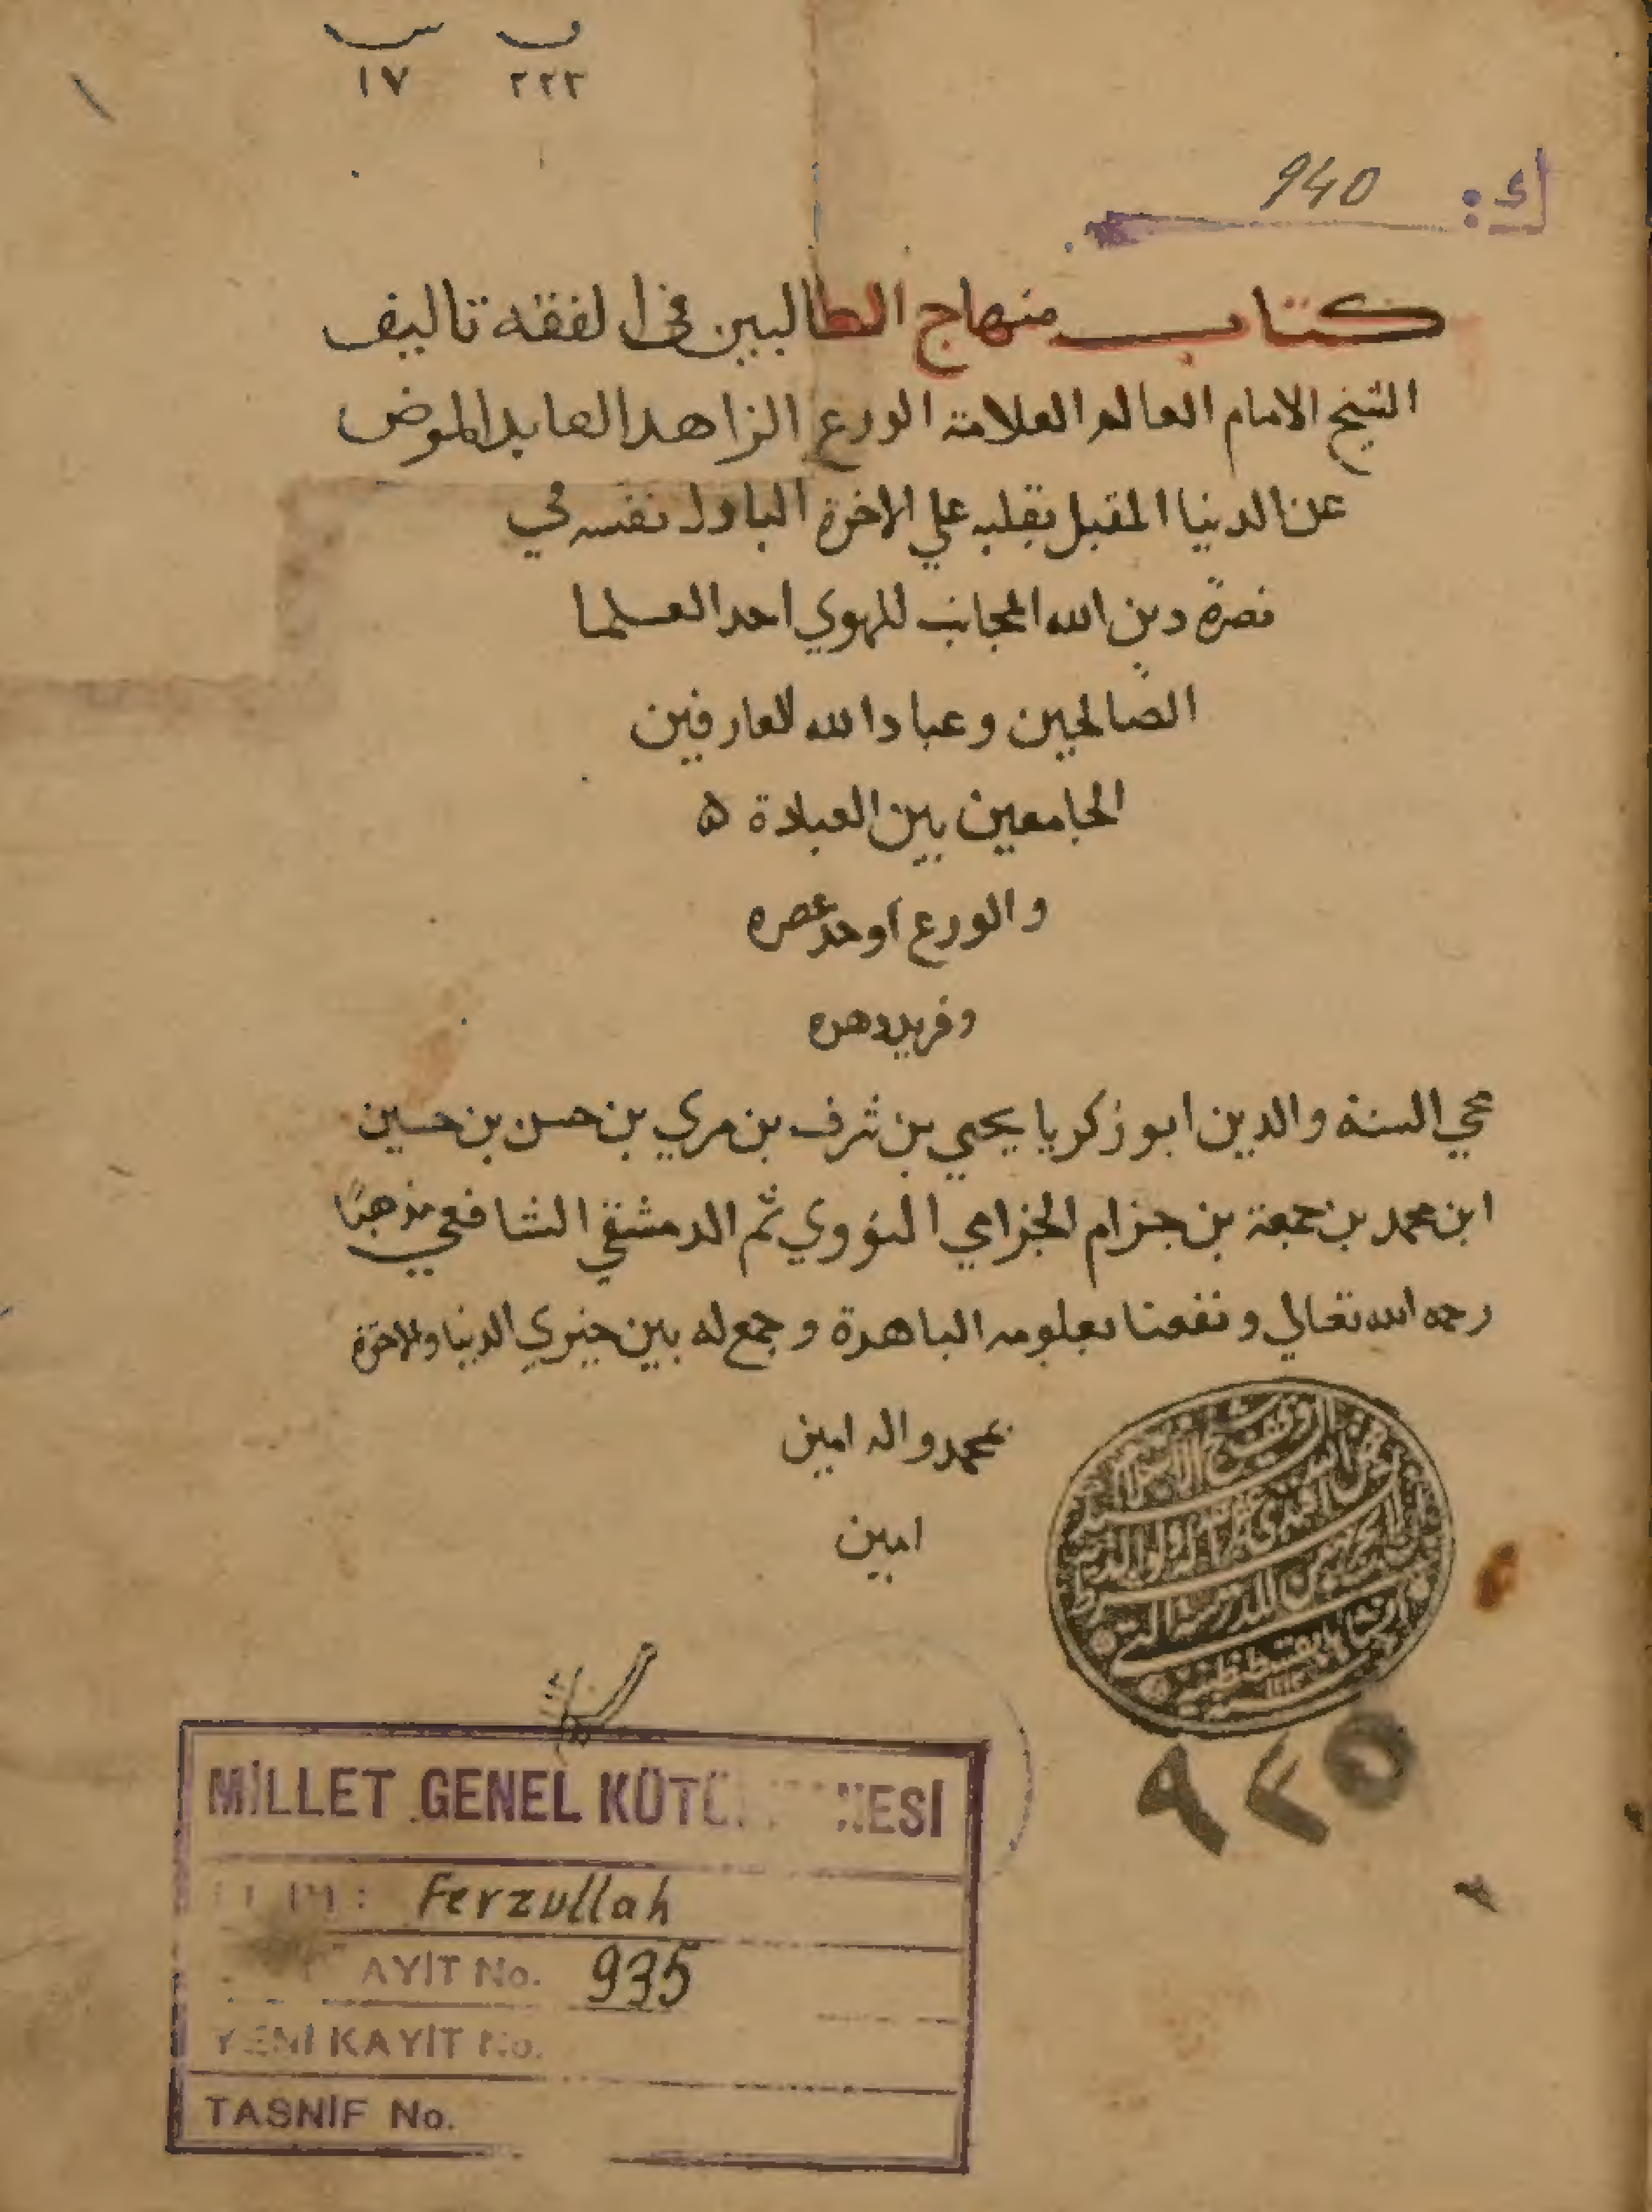 ١٧ ٢٢٣
940
كتاب منهاج الطالبين في الفقه تاليف
الشيخ الامام العالم العلامة الورع الزاهد العابد المعرض
عن الدنيا المقبل بقلبه علي الاخرة الباذل نفسه في
نصرة دين الله المجانب للهوي احد العلما
الصالحين وعباد الله العارفين
الجامعين بين العبادة ه
والورع اوحد عصره
وفريد دهره
محي السنة والدين ابو زكريا يحيي بن شرف بن مري بن حسن بن حسين
ابن محمد بن جمعة بن حزام الحزامي النووي ثم الدمشقي الشافعي مذهبًا
رحمه الله تعالي ونفعنا بعلومه الباهرة وجمع له بين خيري الدنيا والاخرة
بمحمد واله امين
امين
٩٣٥
MİLLET GENEL
Ferzullah
AYİT No. 935
YENİ KAYİT No.
TASNİF No.